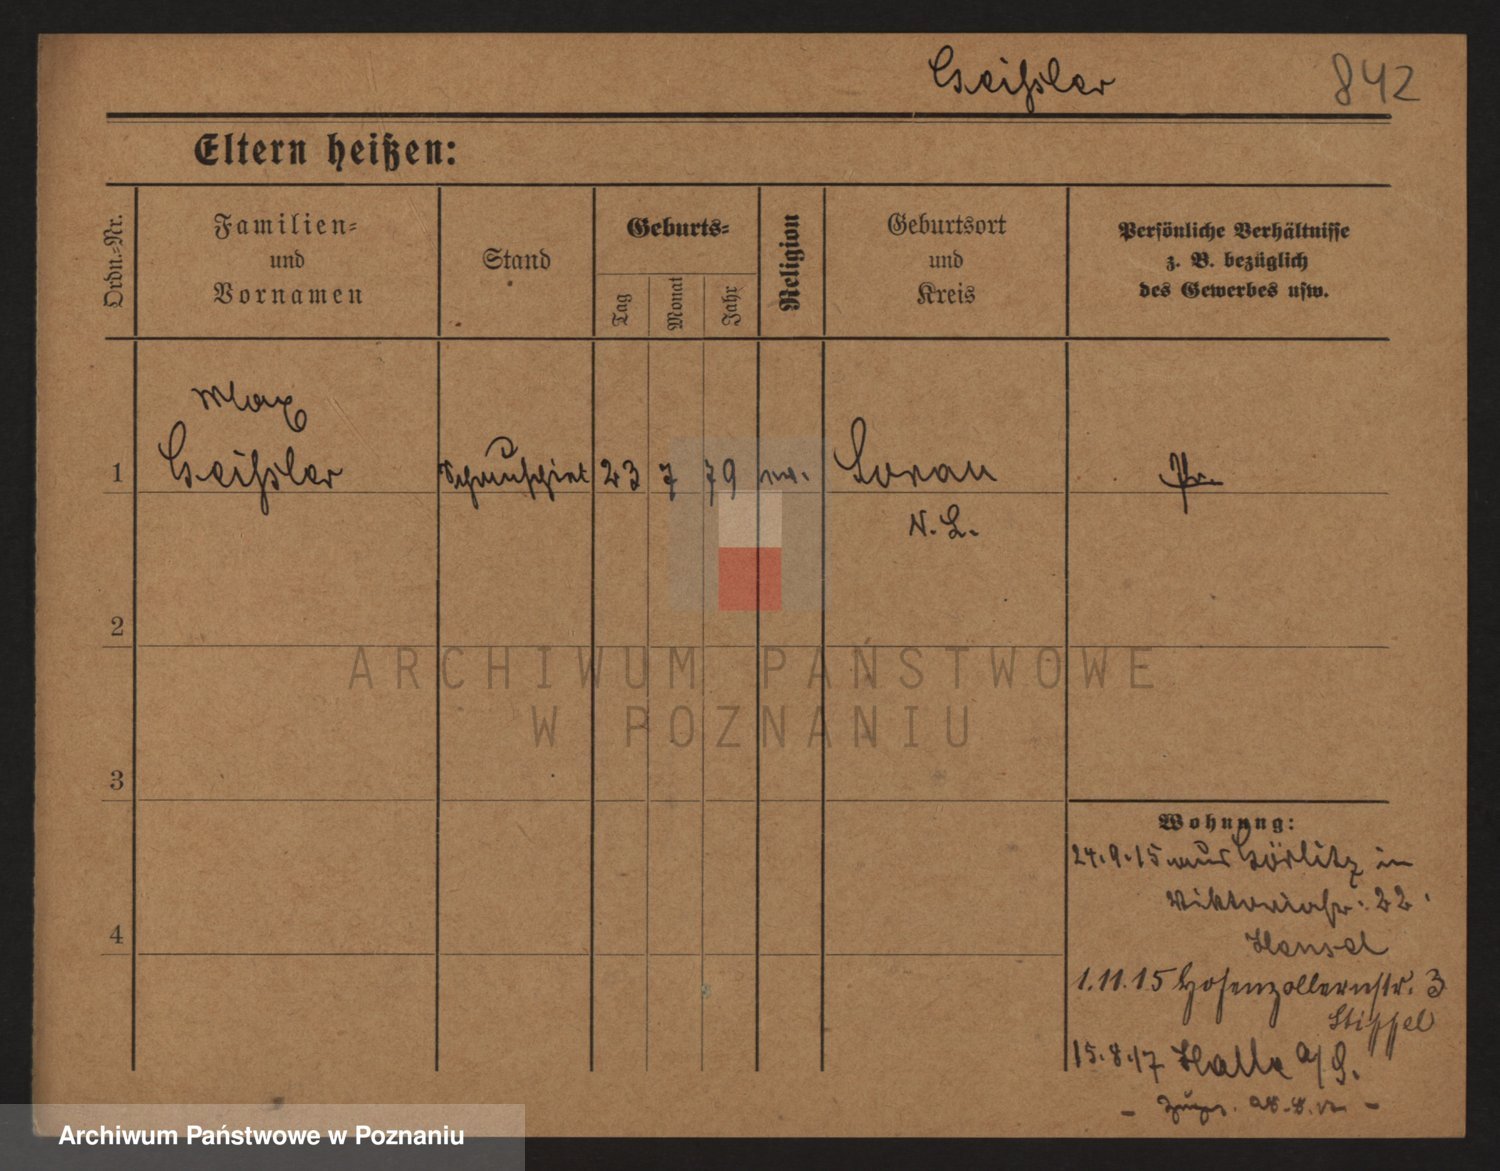 Geißler 842
Eltern heißen:
Ordn.-Nr.
Familien-
und
Vornamen
Stand
Geburts-
Tag
Monat
Jahr
Religion
Geburtsort
und
Kreis
Persönliche Verhältnisse
z. B. bezüglich
des Gewerbes usw.
Max
1 Geißler 23 7 79 Sorau Pr.
N. L.
2
ARCHIWUM PAŃSTWOWE
W POZNANIU
3
4
Wohnung:
24.9.15 aus Görlitz in
Viktoriastr. 22.
Hensel
1.11.15 Hohenzollernstr. 3
Stippel
15.8.17 Halle a/S.
Archiwum Państwowe w Poznaniu